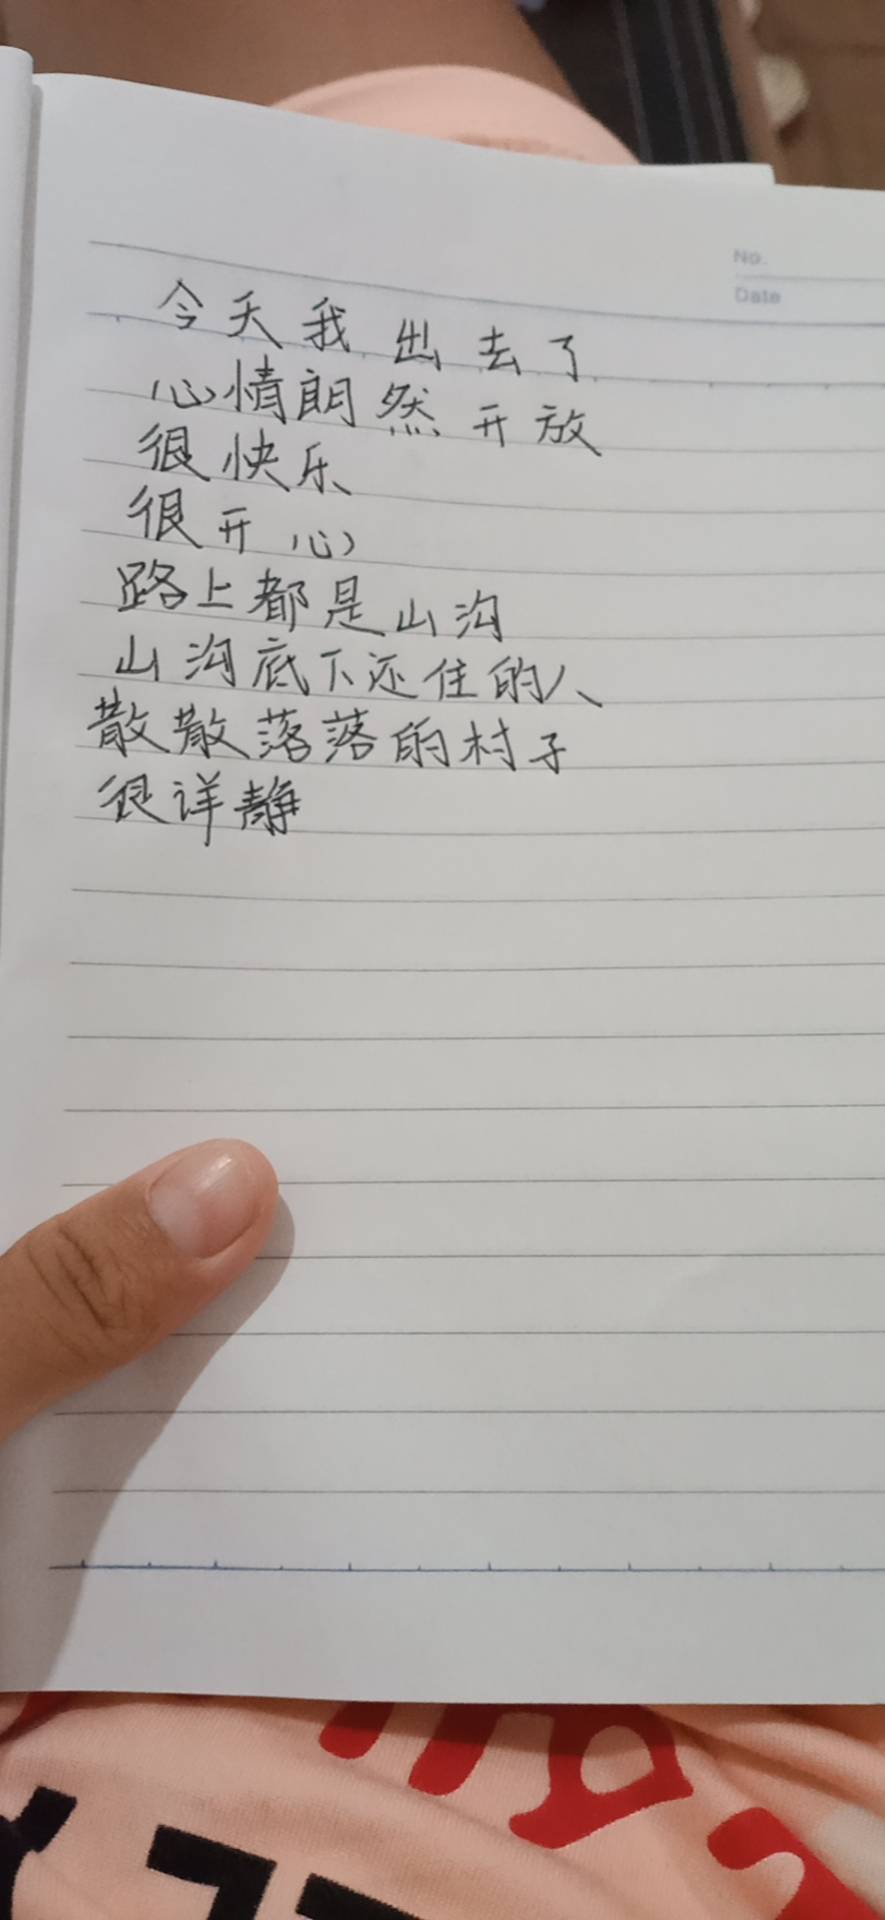 No.
Date
今天我出去了
心情朗然开放
很快乐
很开心
路上都是山沟
山沟底下还住的人
散散落落的村子
很详静